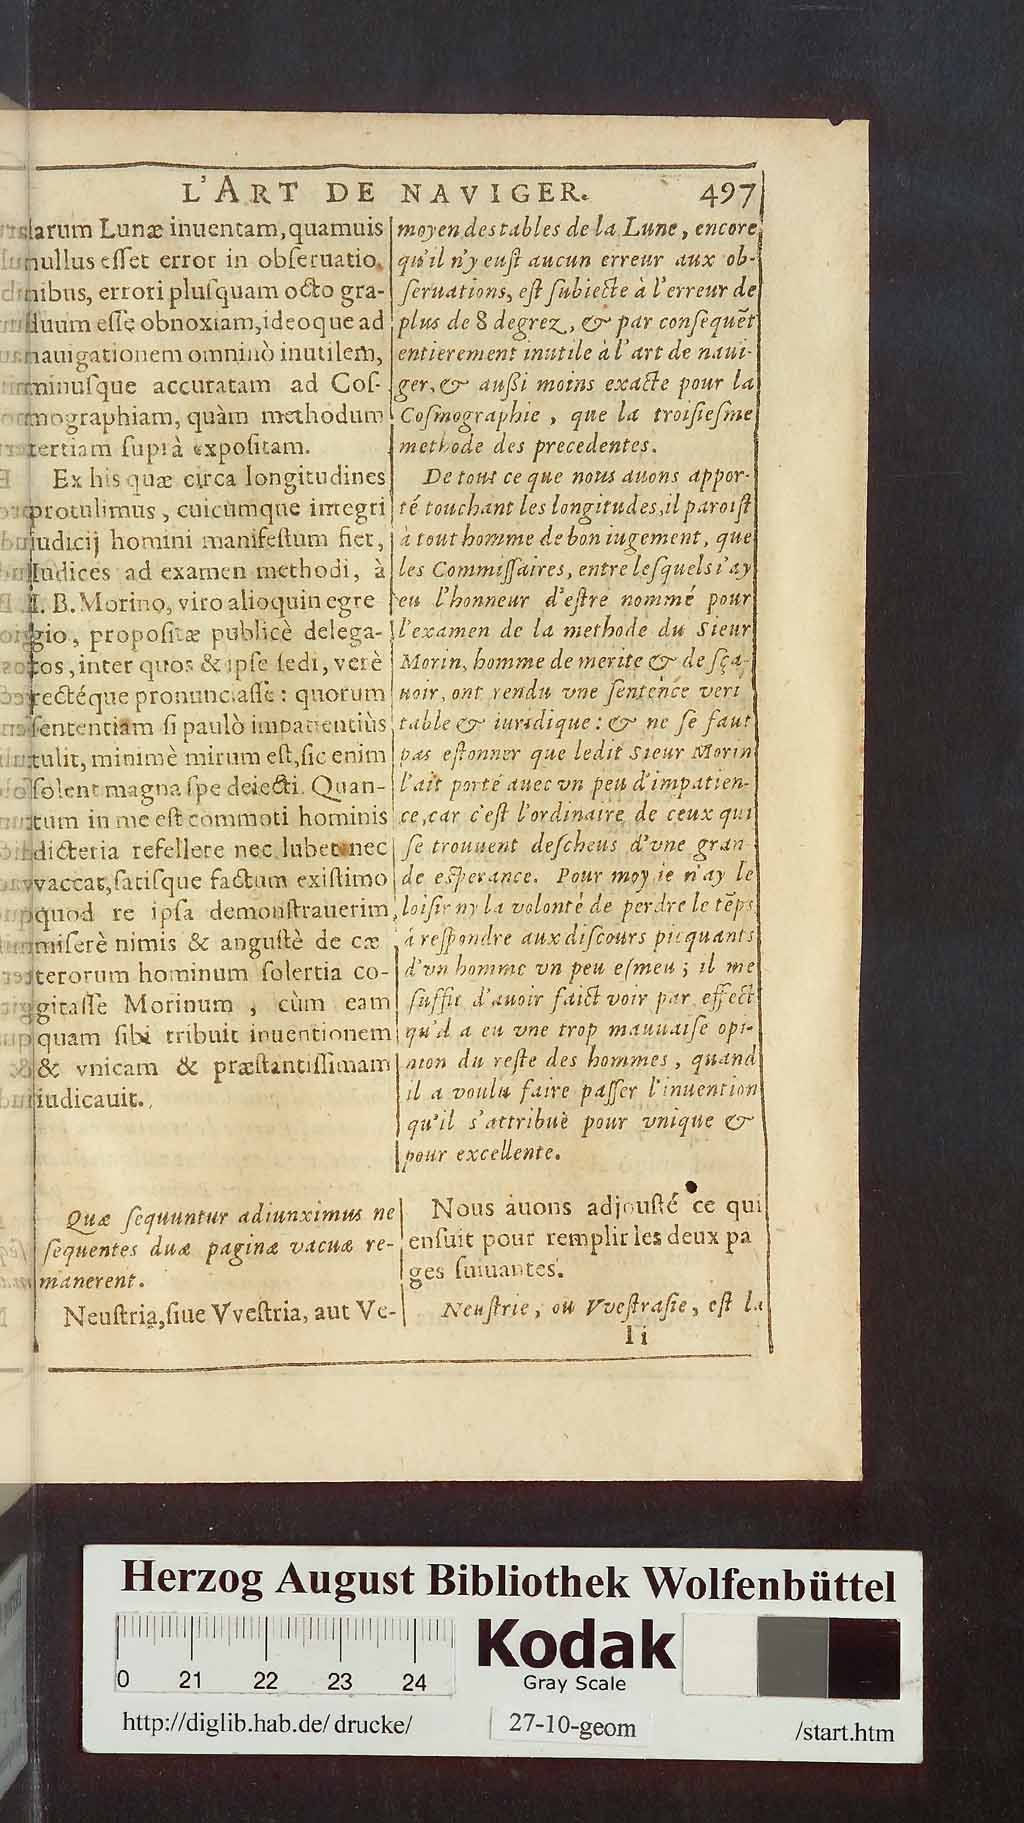 L'ART DE NAVIGER. 497
larum Lunæ inuentam, quamuis
nullus esset error in obseruatio
nibus, errori plusquam octo gra-
duum esse obnoxiam, ideoque ad
nauigationem omninò inutilem,
minusque accuratam ad Cos-
mographiam, quàm methodum
tertiam suprà expositam.
Ex his quæ circa longitudines
protulimus, cuicumque integri
iudicij homini manifestum fiet,
Iudices ad examen methodi, à
I. B. Morino, viro alioquin egre
gio, propositæ publicè delega-
tos, inter quos & ipse sedi, verè
rectéque pronunciasse: quorum
sententiam si paulò impatientiùs
tulit, minimè mirum est, sic enim
solent magna spe deiecti. Quan-
tum in me est commoti hominis
dicteria refellere nec lubet nec
vaccat, satisque factum existimo
quod re ipsa demonstrauerim,
miserè nimis & angustè de cæ
terorum hominum solertia co-
gitasse Morinum, cùm eam
quam sibi tribuit inuentionem
& vnicam & præstantissimam
iudicauit.
moyen des tables de la Lune, encore
qu'il n'y eust aucun erreur aux ob-
seruations, est subiecte à l'erreur de
plus de 8 degrez, & par consequēt
entierement inutile à l'art de naui-
ger, & aussi moins exacte pour la
Cosmographie, que la troisiesme
methode des precedentes.
De tout ce que nous auons appor-
té touchant les longitudes, il paroist
à tout homme de bon iugement, que
les Commissaires, entre lesquels i'ay
eu l'honneur d'estre nommé pour
l'examen de la methode du Sieur
Morin, homme de merite & de sça-
uoir, ont rendu vne sentence veri
table & iuridique: & ne se faut
pas estonner que ledit Sieur Morin
l'ait porté auec vn peu d'impatien-
ce, car c'est l'ordinaire de ceux qui
se trouuent descheus d'vne gran
de esperance. Pour moy ie n'ay le
loisir ny la volonté de perdre le tēps
à respondre aux discours picquants
d'vn homme vn peu esmeu; il me
suffit d'auoir faict voir par effect
qu'il a eu vne trop mauuaise opi-
nion du reste des hommes, quand
il a voulu faire passer l'inuention
qu'il s'attribuë pour vnique &
pour excellente.
Quæ sequuntur adiunximus ne
sequentes duæ paginæ vacuæ re-
manerent.
Neustria, siue Vvestria, aut Ve-
Nous auons adjousté ce qui
ensuit pour remplir les deux pa
ges suiuantes.
Neustrie, ou Vvestrasie, est la
Ii
Herzog August Bibliothek Wolfenbüttel
0 21 22 23 24
Kodak
Gray Scale
http://diglib.hab.de/drucke/ 27-10-geom /start.htm